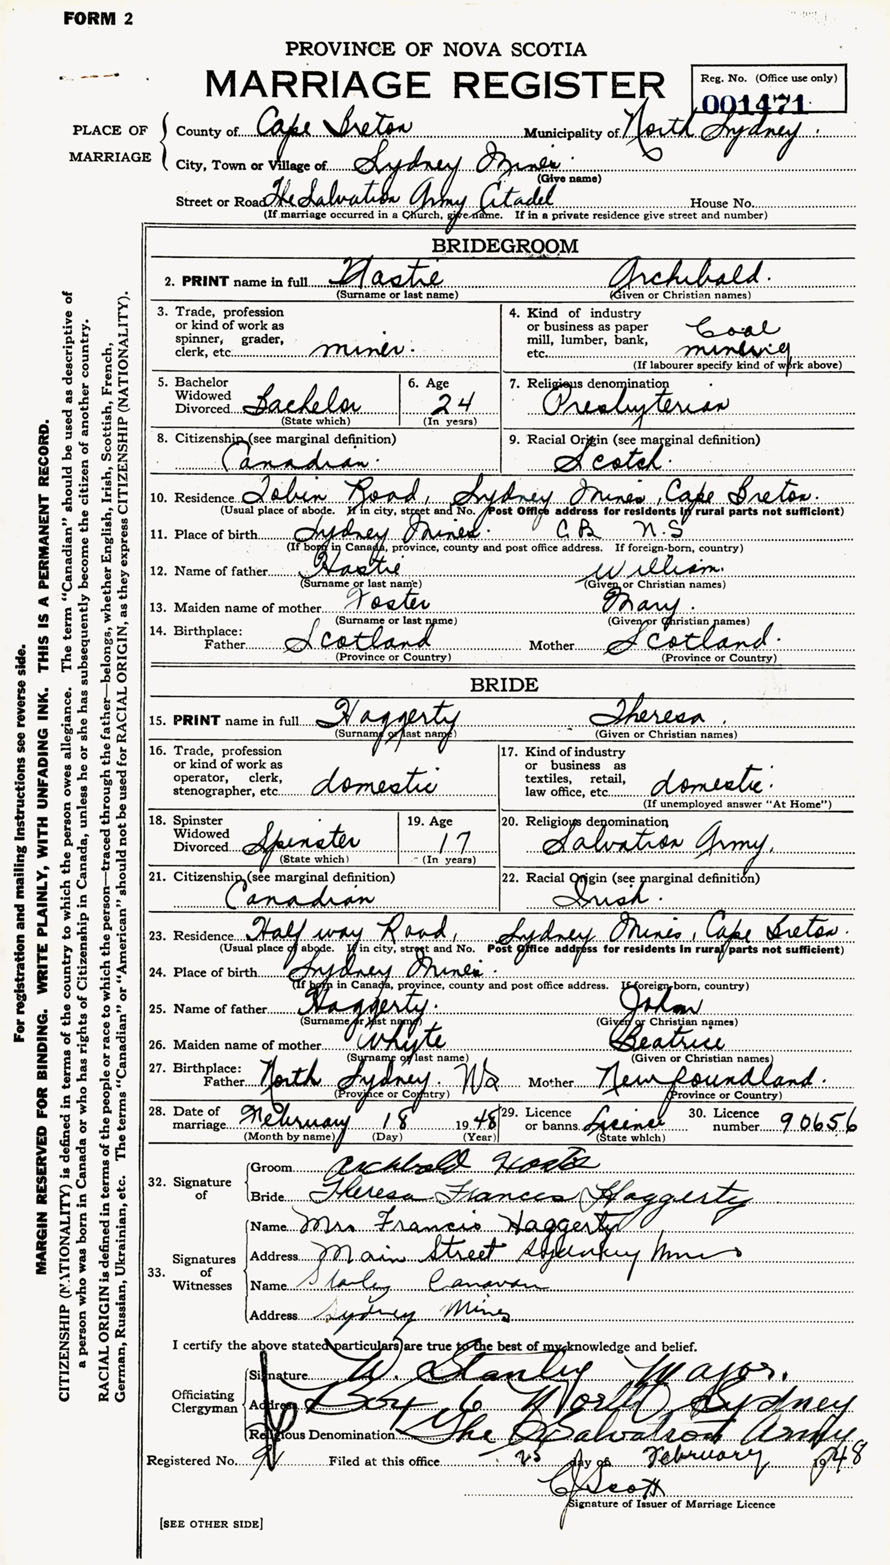 FORM 2
PROVINCE OF NOVA SCOTIA
MARRIAGE REGISTER
Reg. No. (Office use only)
001471
PLACE OF MARRIAGE
County of Cape Breton Municipality of North Sydney.
City, Town or Village of Sydney Mines.
(Give name)
Street or Road The Salvation Army Citadel House No.
(If marriage occurred in a Church, give name. If in a private residence give street and number)
BRIDEGROOM
2. PRINT name in full Hastie Archibald.
(Surname or last name) (Given or Christian names)
3. Trade, profession or kind of work as spinner, grader, clerk, etc. miner.
4. Kind of industry or business as paper mill, lumber, bank, etc. Coal mining
(If labourer specify kind of work above)
5. Bachelor Widowed Divorced Bachelor
(State which)
6. Age 24
(In years)
7. Religious denomination
Presbyterian
8. Citizenship (see marginal definition)
Canadian.
9. Racial Origin (see marginal definition)
Scotch.
10. Residence Tobin Road, Sydney Mines, Cape Breton.
(Usual place of abode. If in city, street and No. Post Office address for residents in rural parts not sufficient)
11. Place of birth Sydney Mines. C.B. N.S
(If born in Canada, province, county and post office address. If foreign-born, country)
12. Name of father Hastie William.
(Surname or last name) (Given or Christian names)
13. Maiden name of mother Foster Mary.
(Surname or last name) (Given or Christian names)
14. Birthplace:
Father Scotland Mother Scotland.
(Province or Country) (Province or Country)
BRIDE
15. PRINT name in full Haggerty Theresa.
(Surname or last name) (Given or Christian names)
16. Trade, profession or kind of work as operator, clerk, stenographer, etc. domestic
17. Kind of industry or business as textiles, retail, law office, etc. domestic.
(If unemployed answer "At Home")
18. Spinster Widowed Divorced Spinster
(State which)
19. Age 17
(In years)
20. Religious denomination
Salvation Army.
21. Citizenship (see marginal definition)
Canadian
22. Racial Origin (see marginal definition)
Irish.
23. Residence Half way Road, Sydney Mines, Cape Breton.
(Usual place of abode. If in city, street and No. Post Office address for residents in rural parts not sufficient)
24. Place of birth Sydney Mines.
(If born in Canada, province, county and post office address. If foreign-born, country)
25. Name of father Haggerty. John
(Surname or last name) (Given or Christian names)
26. Maiden name of mother Whyte Beatrice
(Surname or last name) (Given or Christian names)
27. Birthplace:
Father North Sydney. NS Mother Newfoundland.
(Province or Country) (Province or Country)
28. Date of marriage February 18 1948
(Month by name) (Day) (Year)
29. Licence or banns Licence
(State which)
30. Licence number 90656
32. Signature of
Groom Archibald Hastie
Bride Theresa Frances Haggerty
33. Signatures of Witnesses
Name Mrs Francis Haggerty
Address Main Street Sydney Mines
Name Stanley Canavan
Address Sydney Mines
I certify the above stated particulars are true to the best of my knowledge and belief.
Officiating Clergyman
Signature W. Stanley Major.
Address Box 6 North Sydney
Religious Denomination The Salvation Army
Registered No. 9 Filed at this office 25 day of February 1948
C J Scott
Signature of Issuer of Marriage Licence
[SEE OTHER SIDE]
For registration and mailing instructions see reverse side.
MARGIN RESERVED FOR BINDING. WRITE PLAINLY, WITH UNFADING INK. THIS IS A PERMANENT RECORD.
CITIZENSHIP (NATIONALITY) is defined in terms of the country to which the person owes allegiance. The term "Canadian" should be used as descriptive of
a person who was born in Canada or who has rights of Citizenship in Canada, unless he or she has subsequently become the citizen of another country.
RACIAL ORIGIN is defined in terms of the people or race to which the person—traced through the father—belongs, whether English, Irish, Scottish, French,
German, Russian, Ukrainian, etc. The terms "Canadian" or "American" should not be used for RACIAL ORIGIN, as they express CITIZENSHIP (NATIONALITY).